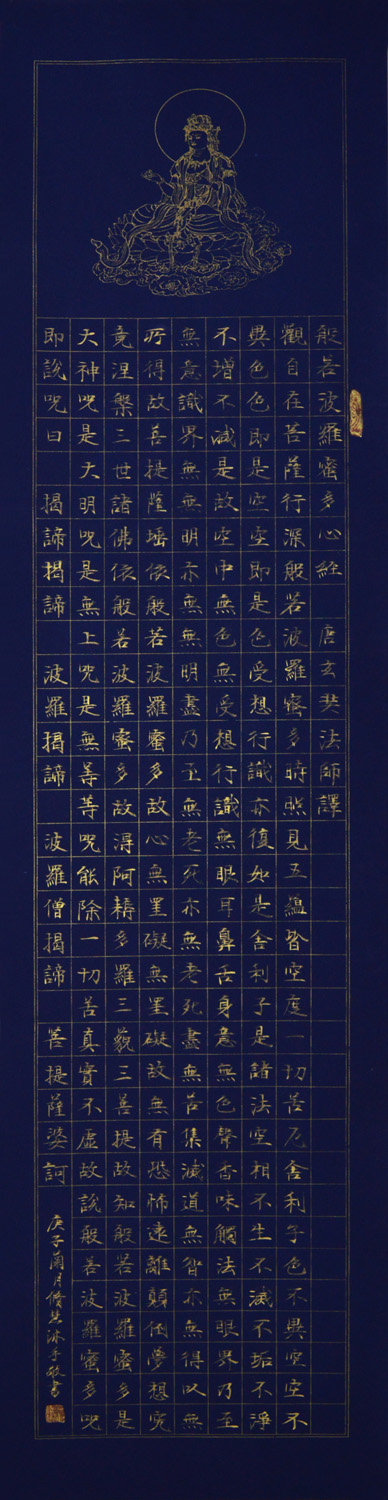 般若波羅蜜多心經 唐玄奘法師譯
觀自在菩薩行深般若波羅蜜多時照見五蘊皆空度一切苦厄舍利子色不異空空不
異色色即是空空即是色受想行識亦復如是舍利子是諸法空相不生不滅不垢不淨
不增不減是故空中無色無受想行識無眼耳鼻舌身意無色聲香味觸法無眼界乃至
無意識界無無明亦無無明盡乃至無老死亦無老死盡無苦集滅道無智亦無得以無
所得故菩提薩埵依般若波羅蜜多故心無罣礙無罣礙故無有恐怖遠離顛倒夢想究
竟涅槃三世諸佛依般若波羅蜜多故得阿耨多羅三藐三菩提故知般若波羅蜜多是
大神咒是大明咒是無上咒是無等等咒能除一切苦真實不虛故說般若波羅蜜多咒
即說咒曰 揭諦揭諦 波羅揭諦 波羅僧揭諦 菩提薩婆訶
庚子蘭月脩慧沐手敬書